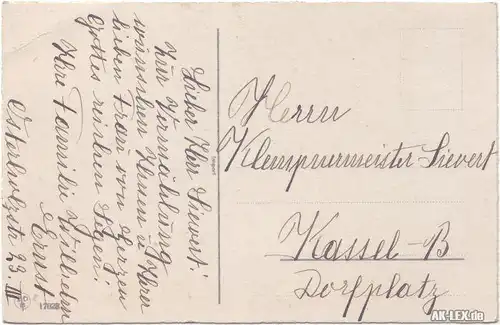 Lieber Herr Sievert!
Zur Vermählung
wünschen Ihnen u. Ihrer
lieben Frau von Herzen
Gottes reichen Segen!
Ihre Familie
Ernst
23. III
Herrn
Klempnermeister Sievert
Kassel-B
Dorfplatz
AK-LEX.de